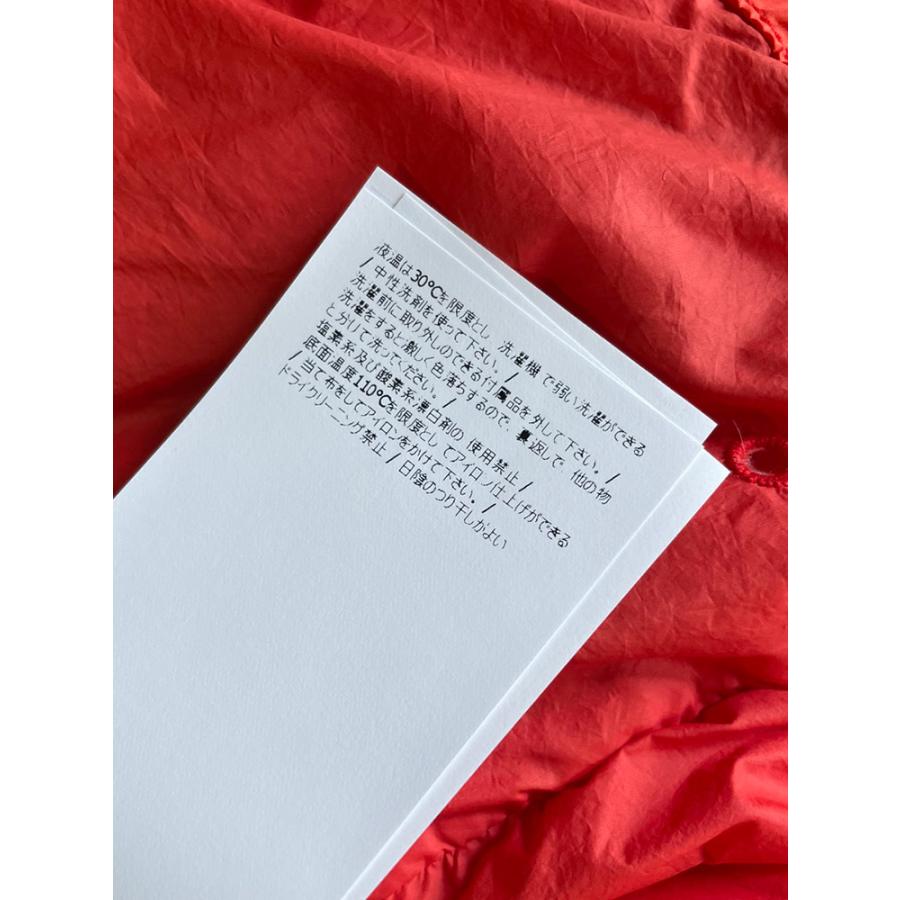 液温は30℃を限度とし、洗濯機で弱い洗濯ができる
/ 中性洗剤を使って下さい。/
洗濯前に取り外しのできる付属品を外して下さい。/
洗濯をすると激しく色落ちするので、裏返しで、他の物
と分けて洗ってください。/
塩素系及び酸素系漂白剤の 使用禁止 /
底面温度110℃を限度とし てアイロン仕上げができる
/ 当て布をしてアイロンをかけて下さい。/
ドライクリーニング禁止 / 日陰のつり干しがよい